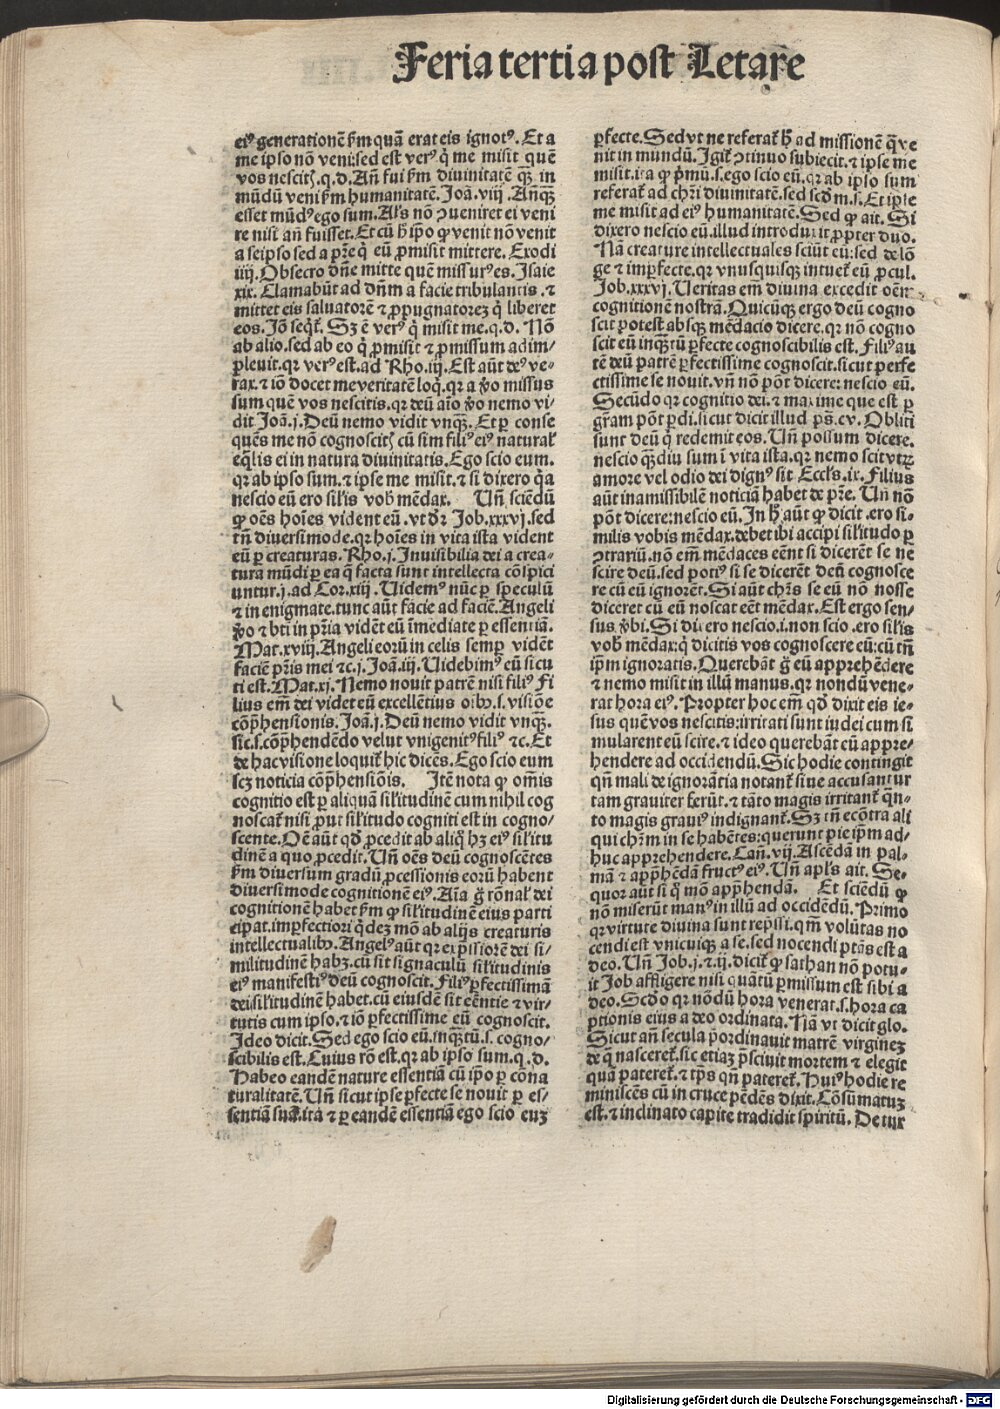 Feria tertia post Letare
eiꝰ generationē ẜm quā erat eis ignotꝰ. Et a
me ipso nō veni: sed est verꝰ q̇ me misit quē
vos nescitꝭ. q. d. Añ fui ẜm diuinitatē qȝ in
mūdū veni ẜm humanitatē. Joā. viij. Anqȝ
esset mūdꝰ ego sum. Al̓s nō ꝯueniret ei veni
re nisi añ fuisset. Et cū h̓ ip̄o ꝙ venit nō venit
a seipso sed a pr̄e q̇ eū ꝓmisit mittere. Exodi
iiij. Obsecro dn̄e mitte quē missurꝰ es. Isaie
xix. Clamabūt ad dn̄m a facie tribulantis. ⁊
mittet eis saluatorē ⁊ ꝓpugnatoreȝ q̇ liberet
eos. Iō seqt̄. Sȝ ē verꝰ q̇ misit me. q. d. Nō
ab alio. sed ab eo q̇ ꝓmisit ⁊ ꝓmissum adim/
pleuit. qr verꝰ est. ad Rho. iij. Est aūt deꝰ ve-
rax. ⁊ iō docet me veritatē loq̇. qr a v̓o missus
sum quē vos nescitis. qr deū aīo v̓o nemo vi/
dit Joā. j. Deū nemo vidit vnqȝ. Et ꝑ conse
quēs me nō cognoscitꝭ cū sim filiꝰ eiꝰ natural̓
eq̄lis ei in natura diuinitatis. Ego scio eum.
qr ab ipso sum. ⁊ ipse me misit. ⁊ si dixero q̄a
nescio eū ero sil̓is vob̓ mēdax. Uñ sciēdū
ꝙ oēs hoīes vident eū. vt dr̄ Job. xxxvj. sed
tñ diuersimode. qr hoīes in vita ista vident
eū ꝑ creaturas. Rho. j. Inuisibilia dei a crea-
tura mūdi ꝑ ea q̄ facta sunt intellecta cōspici
untur. j. ad Cor. xiij. Uidemꝰ nūc ꝑ speculū
⁊ in enigmate. tunc aūt facie ad faciē. Angeli
v̓o ⁊ bti in pr̄ia vidēt eū īmediate ꝑ essentiā.
Mat. xviij. Angeli eorū in celis semꝑ vidēt
faciē pr̄is mei ⁊c. j. Joā. iij. Uidebimꝰ eū sicu
ti est. Mat. xj. Nemo nouit patrē nisi filiꝰ Fi
lius em̄ dei videt eū excellētius oībꝰ. s. visiōe
cōp̄hensionis. Joā. j. Deū nemo vidit vnqȝ.
sic. s. cōp̄hendēdo velut vnigenitꝰ filiꝰ ⁊c. Et
de hac visione loquit̄ hic dicēs. Ego scio eum
scȝ noticia cōp̄hensiōis. Itē nota ꝙ om̄is
cognitio est ꝑ aliquā sil̓itudinē cum nihil cog
noscat̄ nisi ꝓut sil̓itudo cogniti est in cogno/
scente. Oē aūt qḋ ꝓcedit ab aliq̇ hȝ eiꝰ sil̓itu
dinē a quo ꝓcedit. Uñ oēs deū cognoscētes
ẜm diuersum gradū ꝓcessionis eorū habent
diuersimode cognitionē eiꝰ. Aīa g̊ rōnal̓ dei
cognitionē habet ẜm ꝙ sil̓itudinē eius parti
cipat. imꝑfectiori q̇deȝ mō ab alijs creaturis
intellectualibꝰ. Angelꝰ aūt qr exp̄ssiorē dei si/
militudinē habȝ. cū sit signaculū sil̓itudinis
eiꝰ manifestiꝰ deū cognoscit. Filiꝰ ꝑfectissimā
dei sil̓itudinē habet. cū eiusdē sit eēntie ⁊ vir-
tutis cum ipso. ⁊ iō ꝑfectissime eū cognoscit.
Ideo dicit. Sed ego scio eū. inqȝtū. s. cogno/
scibilis est. Cuius rō est. qr ab ipso sum. q. d.
Habeo eandē nature essentiā cū ip̄o ꝑ cōna
turalitatē. Uñ sicut ipse ꝑfecte se nouit ꝑ es/
sentiā suā. ita ⁊ ꝑ eandē essentiā ego scio euȝ
ꝑfecte. Sed vt ne referat̄ h̓ ad missionē q̄ ve
nit in mundū. Igit̄ ꝯtinuo subiecit. ⁊ ipse me
misit. ita ꝙ p̓mū. s. ego scio eū. qr ab ipso sum
referat̄ ad chr̄i diuinitatē. sed scḋm. s. Et ipse
me misit ad eiꝰ humanitatē. Sed ꝙ ait. Si
dixero nescio eū. illud introduxit ꝓpter duo.
Nā creature intellectuales sciūt eū: sed de lō
ge ⁊ imꝑfecte. qr vnusquisqȝ intuet̄ eū ꝓcul.
Job. xxxvj. Ueritas em̄ diuina excedit oēm
cognitionē nostrā. Quicūqȝ ergo deū cogno
scit potest absqȝ mēdacio dicere. qr nō cogno
scit eū inqȝtū ꝑfecte cognoscibilis est. Filiꝰ au
tē deū patrē ꝑfectissime cognoscit. sicut perfe
ctissime se nouit. vñ nō pōt dicere: nescio eū.
Secūdo qr cognitio dei. ⁊ maxime que est ꝑ
gram pōt ꝑdi. sicut dicit illud ps̄. cv. Obliti
sunt deū q̇ redemit eos. Uñ possum dicere.
nescio qȝdiu sum ī vita ista. qr nemo scit vtꝝ
amore vel odio dei dignꝰ sit Eccl̓s. ix. Filius
aūt inamissibilē noticiā habet de pr̄e. Uñ nō
pōt dicere: nescio eū. In h̓ aūt ꝙ dicit. ero si-
milis vobis mēdax. debet ibi accipi sil̓itudo ꝑ
ꝯtrariū. nō em̄ mēdaces eēnt si dicerēt se ne
scire deū. sed potiꝰ si se dicerēt deū cognosce
re cū eū ignorēt. Si aūt chr̄s se eū nō nosse
diceret cū eū noscat eēt mēdax. Est ergo sen-
sus v̓bi. Si dixero nescio. i. non scio. ero sil̓is
vob̓ mēdax: q̇ dicitis vos cognoscere eū: cū tñ
ip̄m ignoratis. Querebāt g̊ eū apprehēdere
⁊ nemo misit in illū manus. qr nondū vene-
rat hora eiꝰ. Propter hoc em̄ qḋ dixit eis ie-
sus quē vos nescitis: irritati sunt iudei cum si
mularent eū scire. ⁊ ideo querebāt cū appre-
hendere ad occidendū. Sic hodie contingit
qn̄ mali de ignorātia notant̄ siue accusantur
tam grauiter ferūt. ⁊ tāto magis irritant̄ q̄n-
to magis grauiꝰ indignant̄. Sȝ tñ ecōtra ali
qui chr̄m in se habētes: querunt pie ip̄m ad/
huc apprehendere. Can̄. vij. Ascēdā in pal-
mā ⁊ app̄hēdā fructꝰ eiꝰ. Uñ apl̓s ait. Se-
quor aūt si q̇ mō app̄hendā. Et sciēdū ꝙ
nō miserūt manꝰ in illū ad occidēdū. Primo
qr virtute diuina sunt rep̄ssi. qm̄ volūtas no
cendi est vnicuiqȝ a se. sed nocendi ptās est a
deo. Uñ Job. j. ⁊ ij. dicit̄ ꝙ sathan nō potu-
it Job affligere nisi quātū ꝑmissum est sibi a
deo. Scḋo qr nōdū hora venerat. s. hora ca
ptionis eius a deo ordinata. Nā vt dicit glo.
Sicut añ secula p̄ordinauit matrē virgineȝ
de q̄ nasceret̄. sic etiaȝ p̄sciuit mortem ⁊ elegit
quā pateret̄. ⁊ tp̄s qn̄ pateret̄. Huiꝰ hodie re
miniscēs cū in cruce pēdēs dixit. Cōsūmatuȝ
est. ⁊ inclinato capite tradidit spiritū. De tux
Digitalisierung gefördert durch die Deutsche Forschungsgemeinschaft - DFG